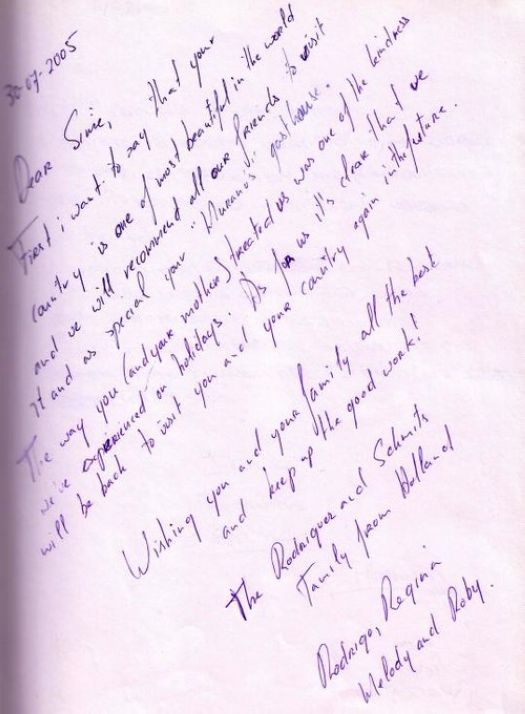 30-07-2005
Dear Sime,
First i want to say that your
country is one of most beautiful in the world
and we will recommend all our friends to visit
it and as special your "Murano's" gasthouse.
The way you (and your mother) treated us was one of the kindness
we've experienced on holidays. As for us it's clear that we
will be back to visit you and your country again in the future.
Wishing you and your family all the best
and keep up the good work!
The Rodriquez and Schmits
Family from Holland
Rodrigo, Regina
Melody and Roby.